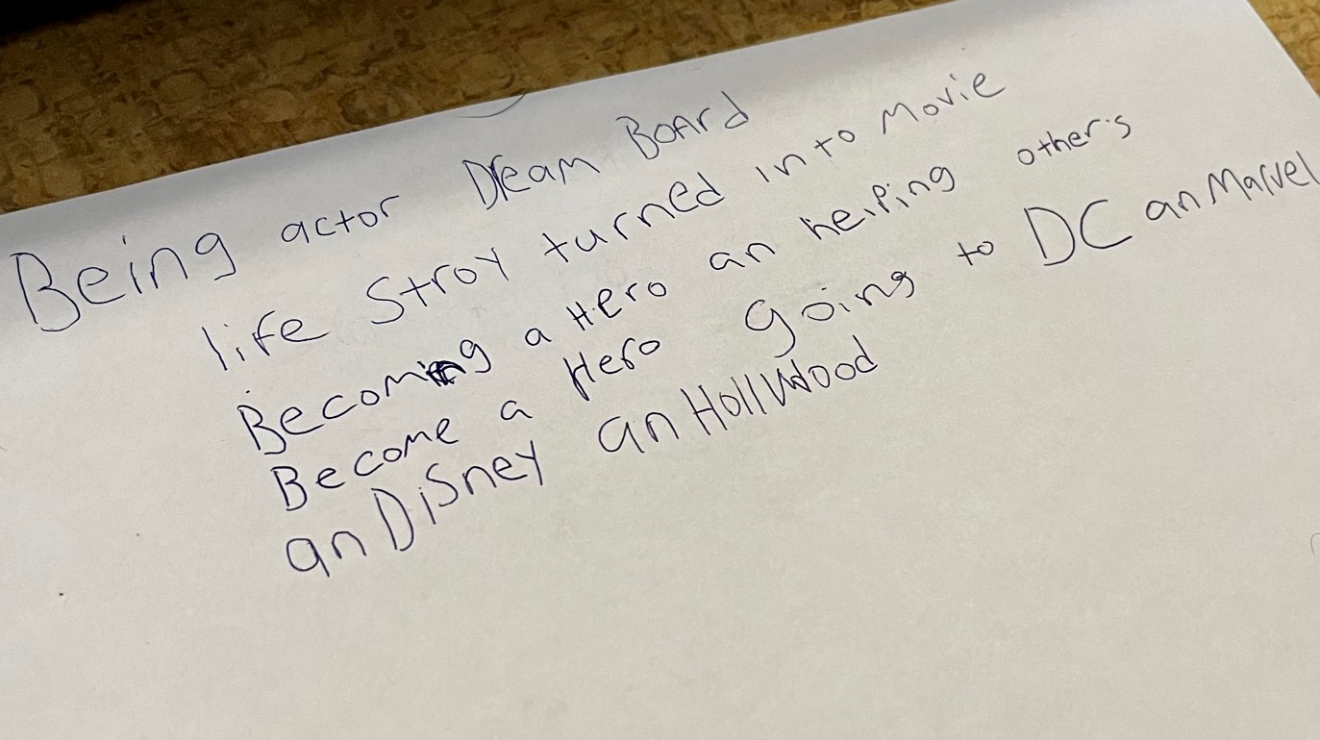 Being actor Dream Board
life Stroy turned in to Movie
Becoming a Hero an helping other's
Become a Hero going to DC an Marvel
an Disney an Hollwood